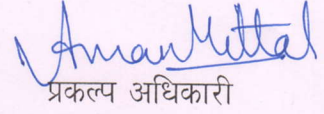 Aman Mittal
प्रकल्प अधिकारी